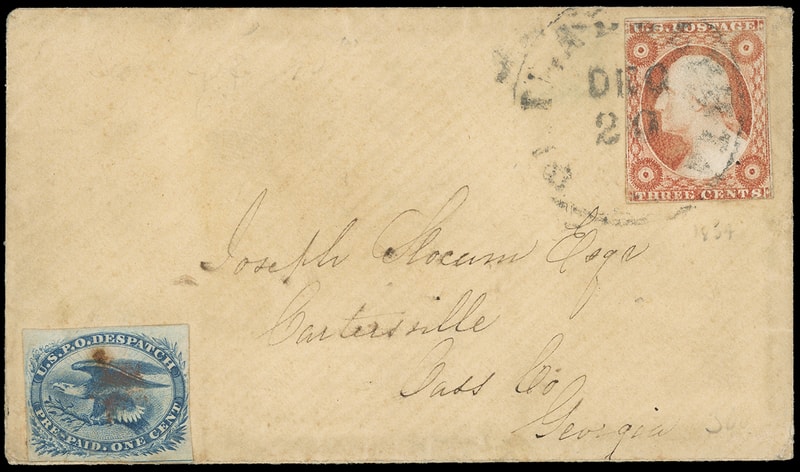 U.S. POSTAGE
DEC
20
THREE CENTS
1854
Joseph Slocum Esqr
Cartersville
Cass Co
Georgia
U.S.P.O. DESPATCH
PRE-PAID. ONE CENT